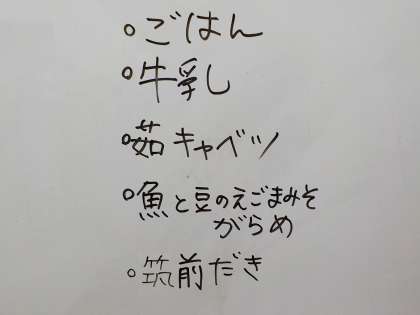 。ごはん
。牛乳
。茹キャベツ
。魚と豆のえごまみそ
がらめ
。筑前だき